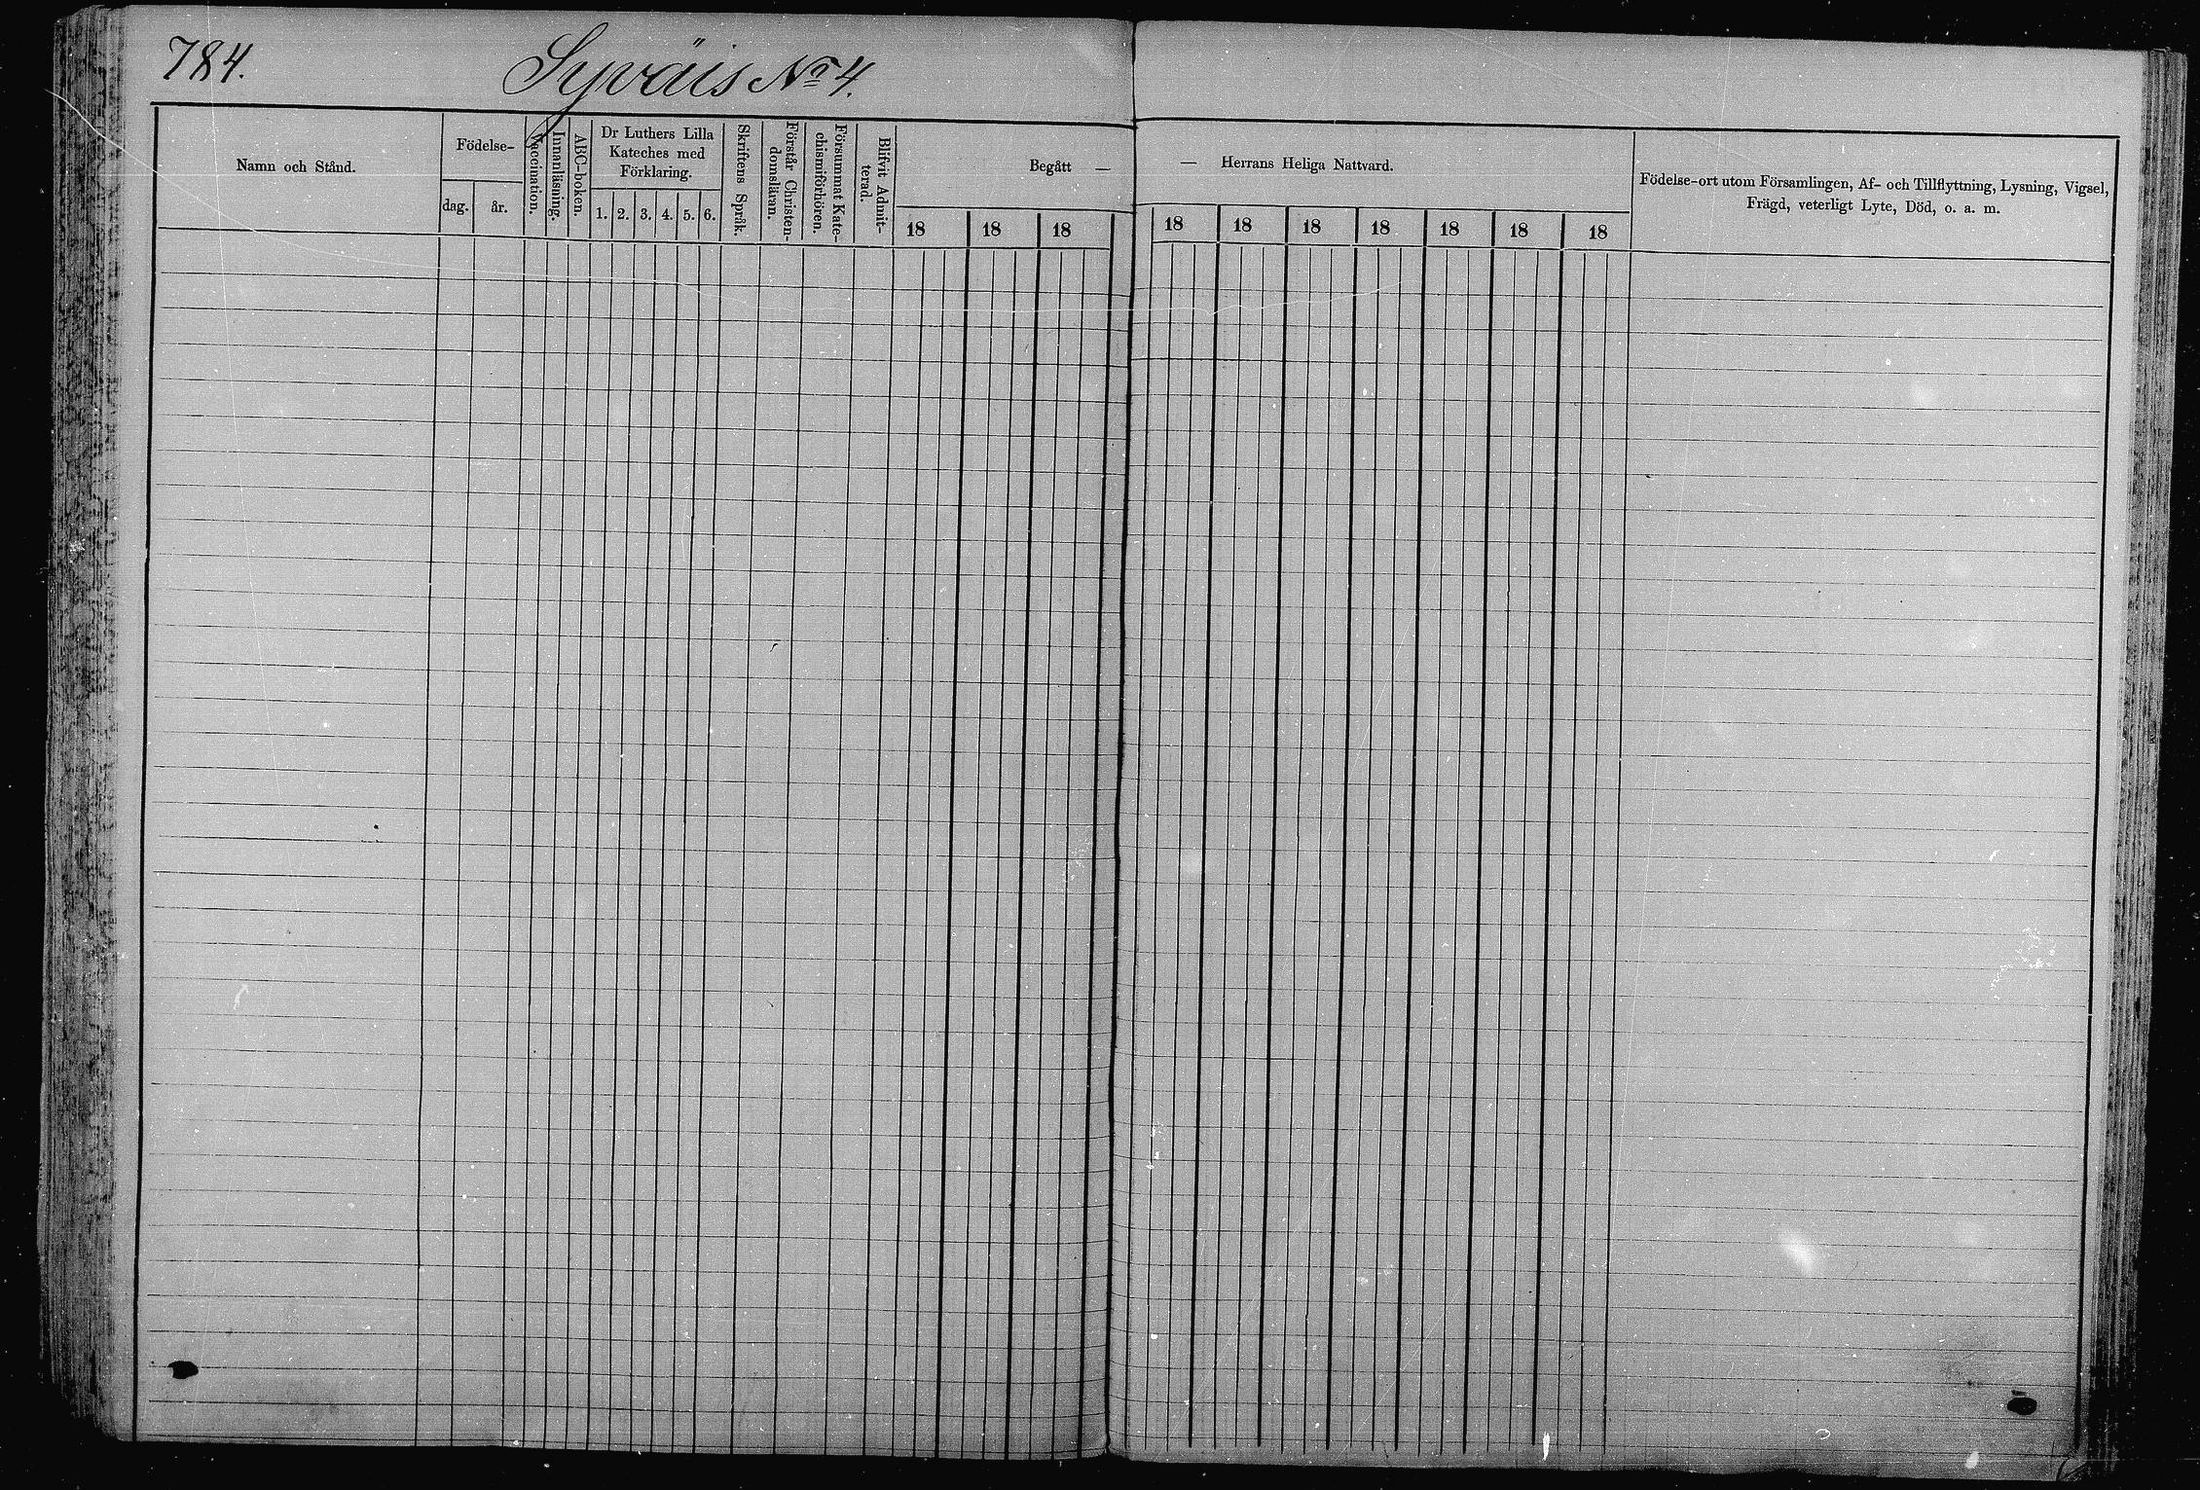 784.
Syväis No 4.
Namn och Stånd.
Födelse-
dag.
år.
Vaccination.
Innanläsning.
ABC-boken.
Dr Luthers Lilla
Kateches med
Förklaring.
1. 2. 3. 4. 5. 6.
Skriftens Språk.
Förstår Christen-
domsläran.
Försummat Kate-
chismiförhören.
Blifvit Admit-
terad.
Begått —
18 18 18
— Herrans Heliga Nattvard.
18 18 18 18 18 18 18
Födelse-ort utom Församlingen, Af- och Tillflyttning, Lysning, Vigsel,
Frägd, veterligt Lyte, Död, o. a. m.